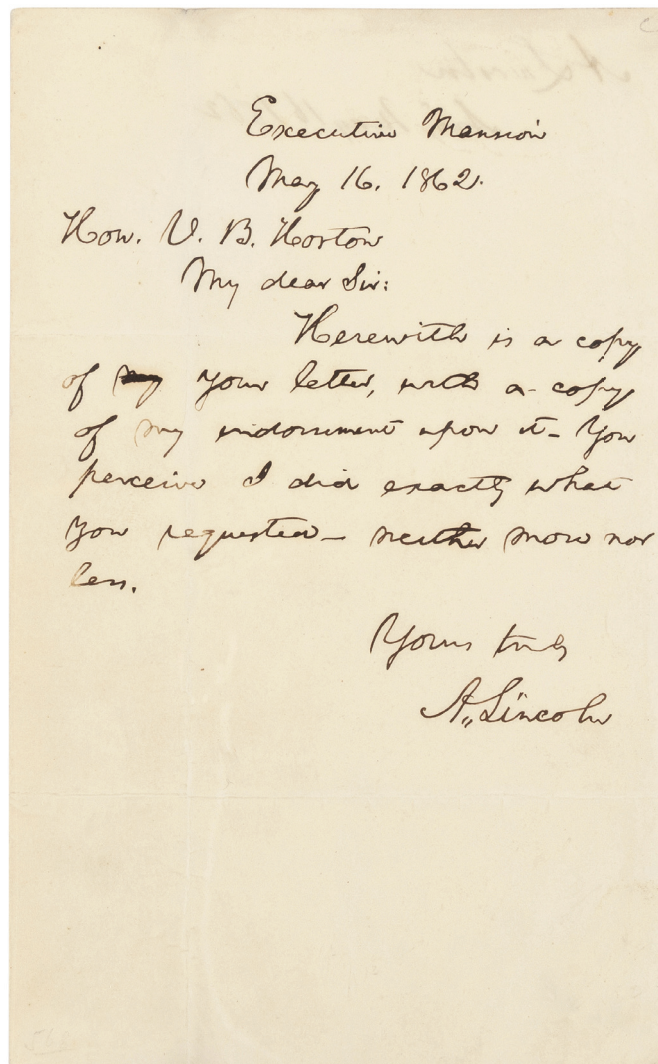 Executive Mansion
May 16. 1862.
Hon. V. B. Horton
My dear Sir:
Herewith is a copy
of my your letter, with a copy
of my indorsement upon it- You
perceive I did exactly what
you requested- neither more nor
less.
Yours truly
A. Lincoln